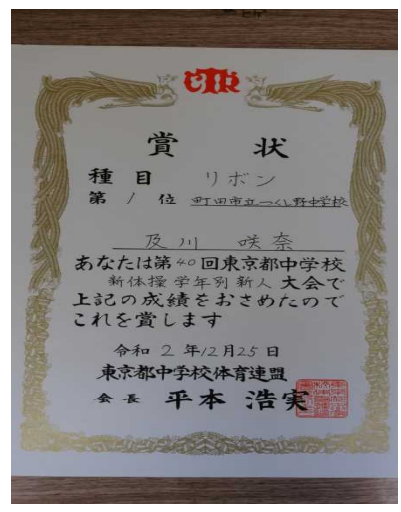 賞状
種目 リボン
第1位 町田市立つくし野中学校
及川 咲奈
あなたは第40回東京都中学校
新体操学年別新人大会で
上記の成績をおさめたので
これを賞します
令和2年12月25日
東京都中学校体育連盟
会長 平本浩実